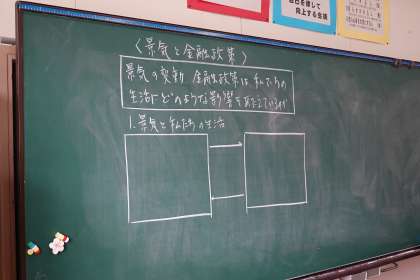 自己を律して
向上する会議
〈景気と金融政策〉
景気の変動、金融政策は私たちの
生活にどのような影響をあたえているか
1.景気と私たちの生活